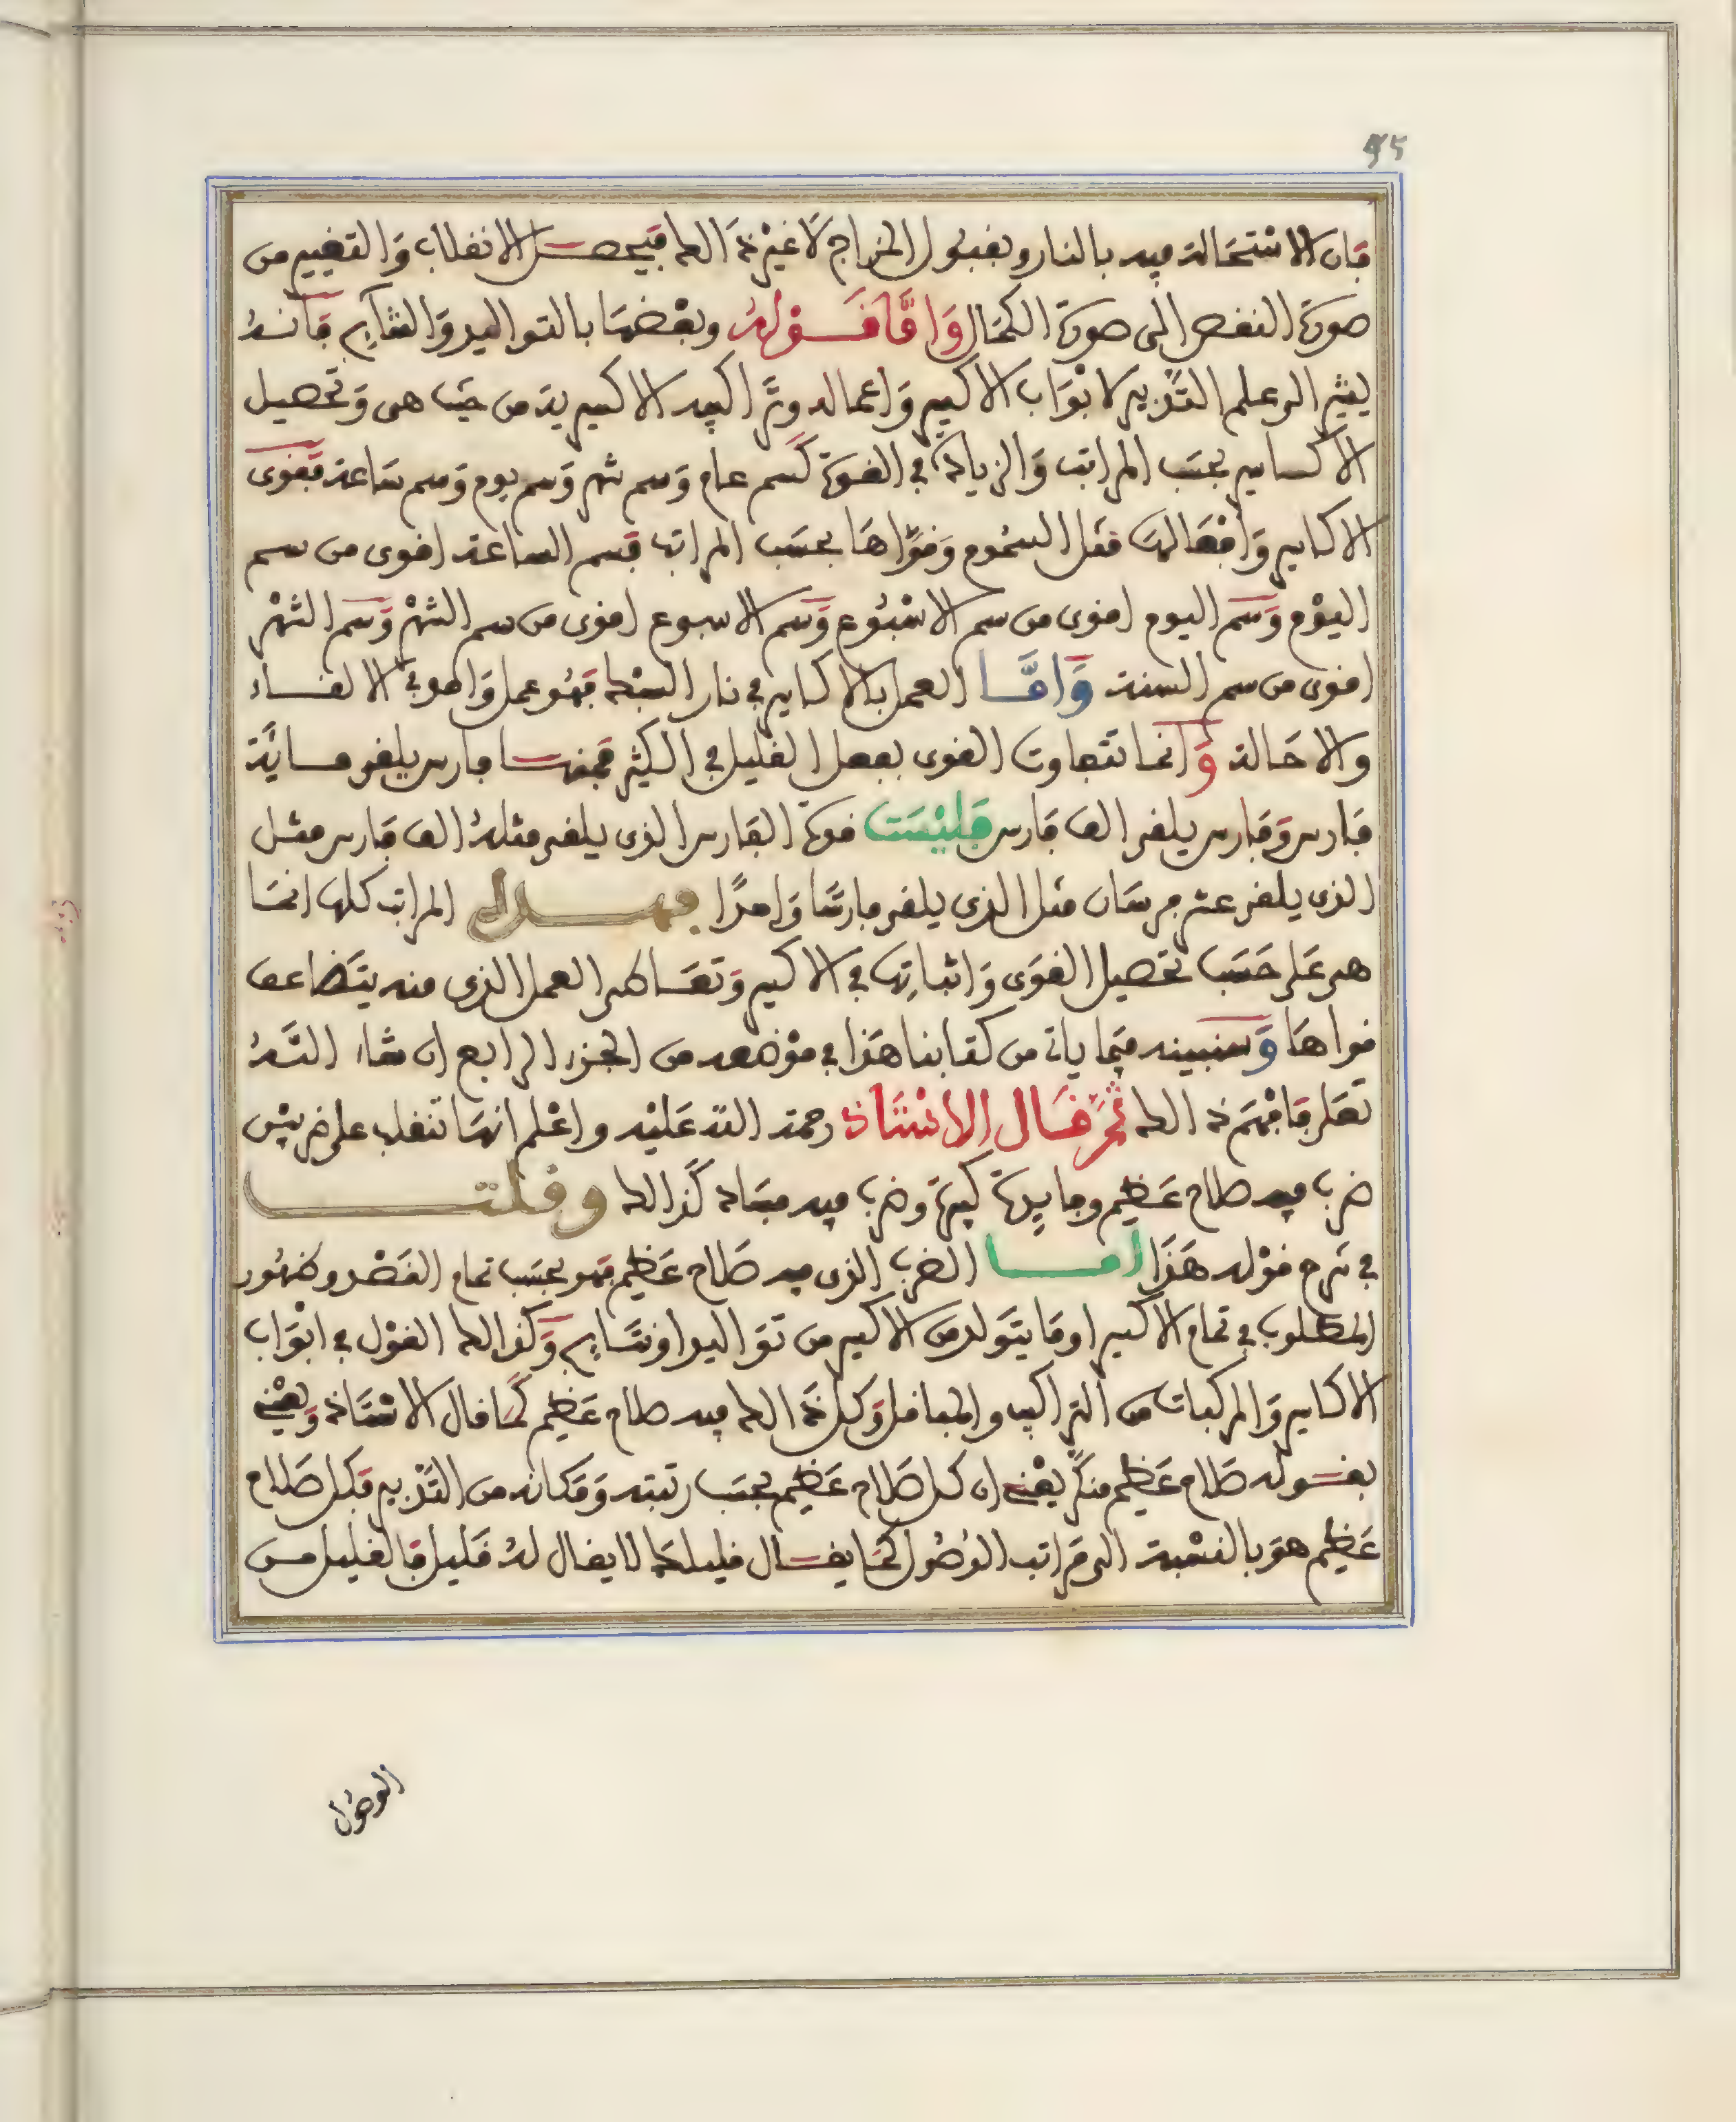 95
فان الاستحالة فيه بالنار وبقبول المزاج لا غير ذالك فيحصل الانقلاب والتغيير من
صورة النقص الى صورة الكمال واما قوله وبعضها بالتواليد والنتايج فانه
يشير الى علم التدبير لابواب الاكسير واعماله وتراكيبه الاكسيرية من حيث هى وتحصيل
الاكاسير بحسب المراتب والزيادة في القوة كسم عام وسم شهر وسم يوم وسم ساعة فقوى
الاكاسير وافعالها مثل السموم وقواها بحسب المراتب فسم الساعة اقوى من سم
اليوم وسم اليوم اقوى من سم الاسبوع وسم الاسبوع اقوى من سم الشهر وسم الشهر
اقوى من سم السنة واما العمل بالاكاسير في نار السبك فهو عمل واحد في الالقاء
والاحالة وانما تتفاوت القوى بفعل القليل في الكثير فمنها فارس يلقى ماية
فارس وفارس يلقى الف فارس فليست قوة الفارس الذى يلقى مثله الف فارس مثل
الذى يلقى عشر فرسان مثل الذى يلقى فارسا واحدا فهذه المراتب كلها انما
هى على حسب تحصيل القوى واثباتها في الاكسير وتعاطى العمل الذى منه يتضاعف
قواها وسنبينه فيما ياتى من كتابنا هذا في موضعه من الجزء الرابع ان شاء الله
تعلى فافهم ذالك ثم قال الاستاذ رحمة الله عليه واعلم انها تنقلب على ضربين
ضرب فيه صلاح عظيم وفايدة كبيرة وضرب فيه فساد كذالك وقلت
في شرح قوله هذا امـا الضرب الذى فيه صلاح عظيم فهو بحسب تمام القصد وظهور
المطلوب في تمام الاكسير او ما يتولد من الاكسير من تواليد او نتايج وكذالك القول في ابواب
الاكاسير والمركبات من التراكيب والمفاصل وكل ذالك فيه صلاح عظيم كما قال الاستاذ ويعنى
بقوله صلاح عظيم منكر يعنى ان كل صلاح عظيم بحسب رتبته ومكانه من التدبير فكل صلاح
عظيم هو بالنسبة الى مراتب الوصول كما يقال قليلك لا يقال له قليل فالقليل من
الوصول